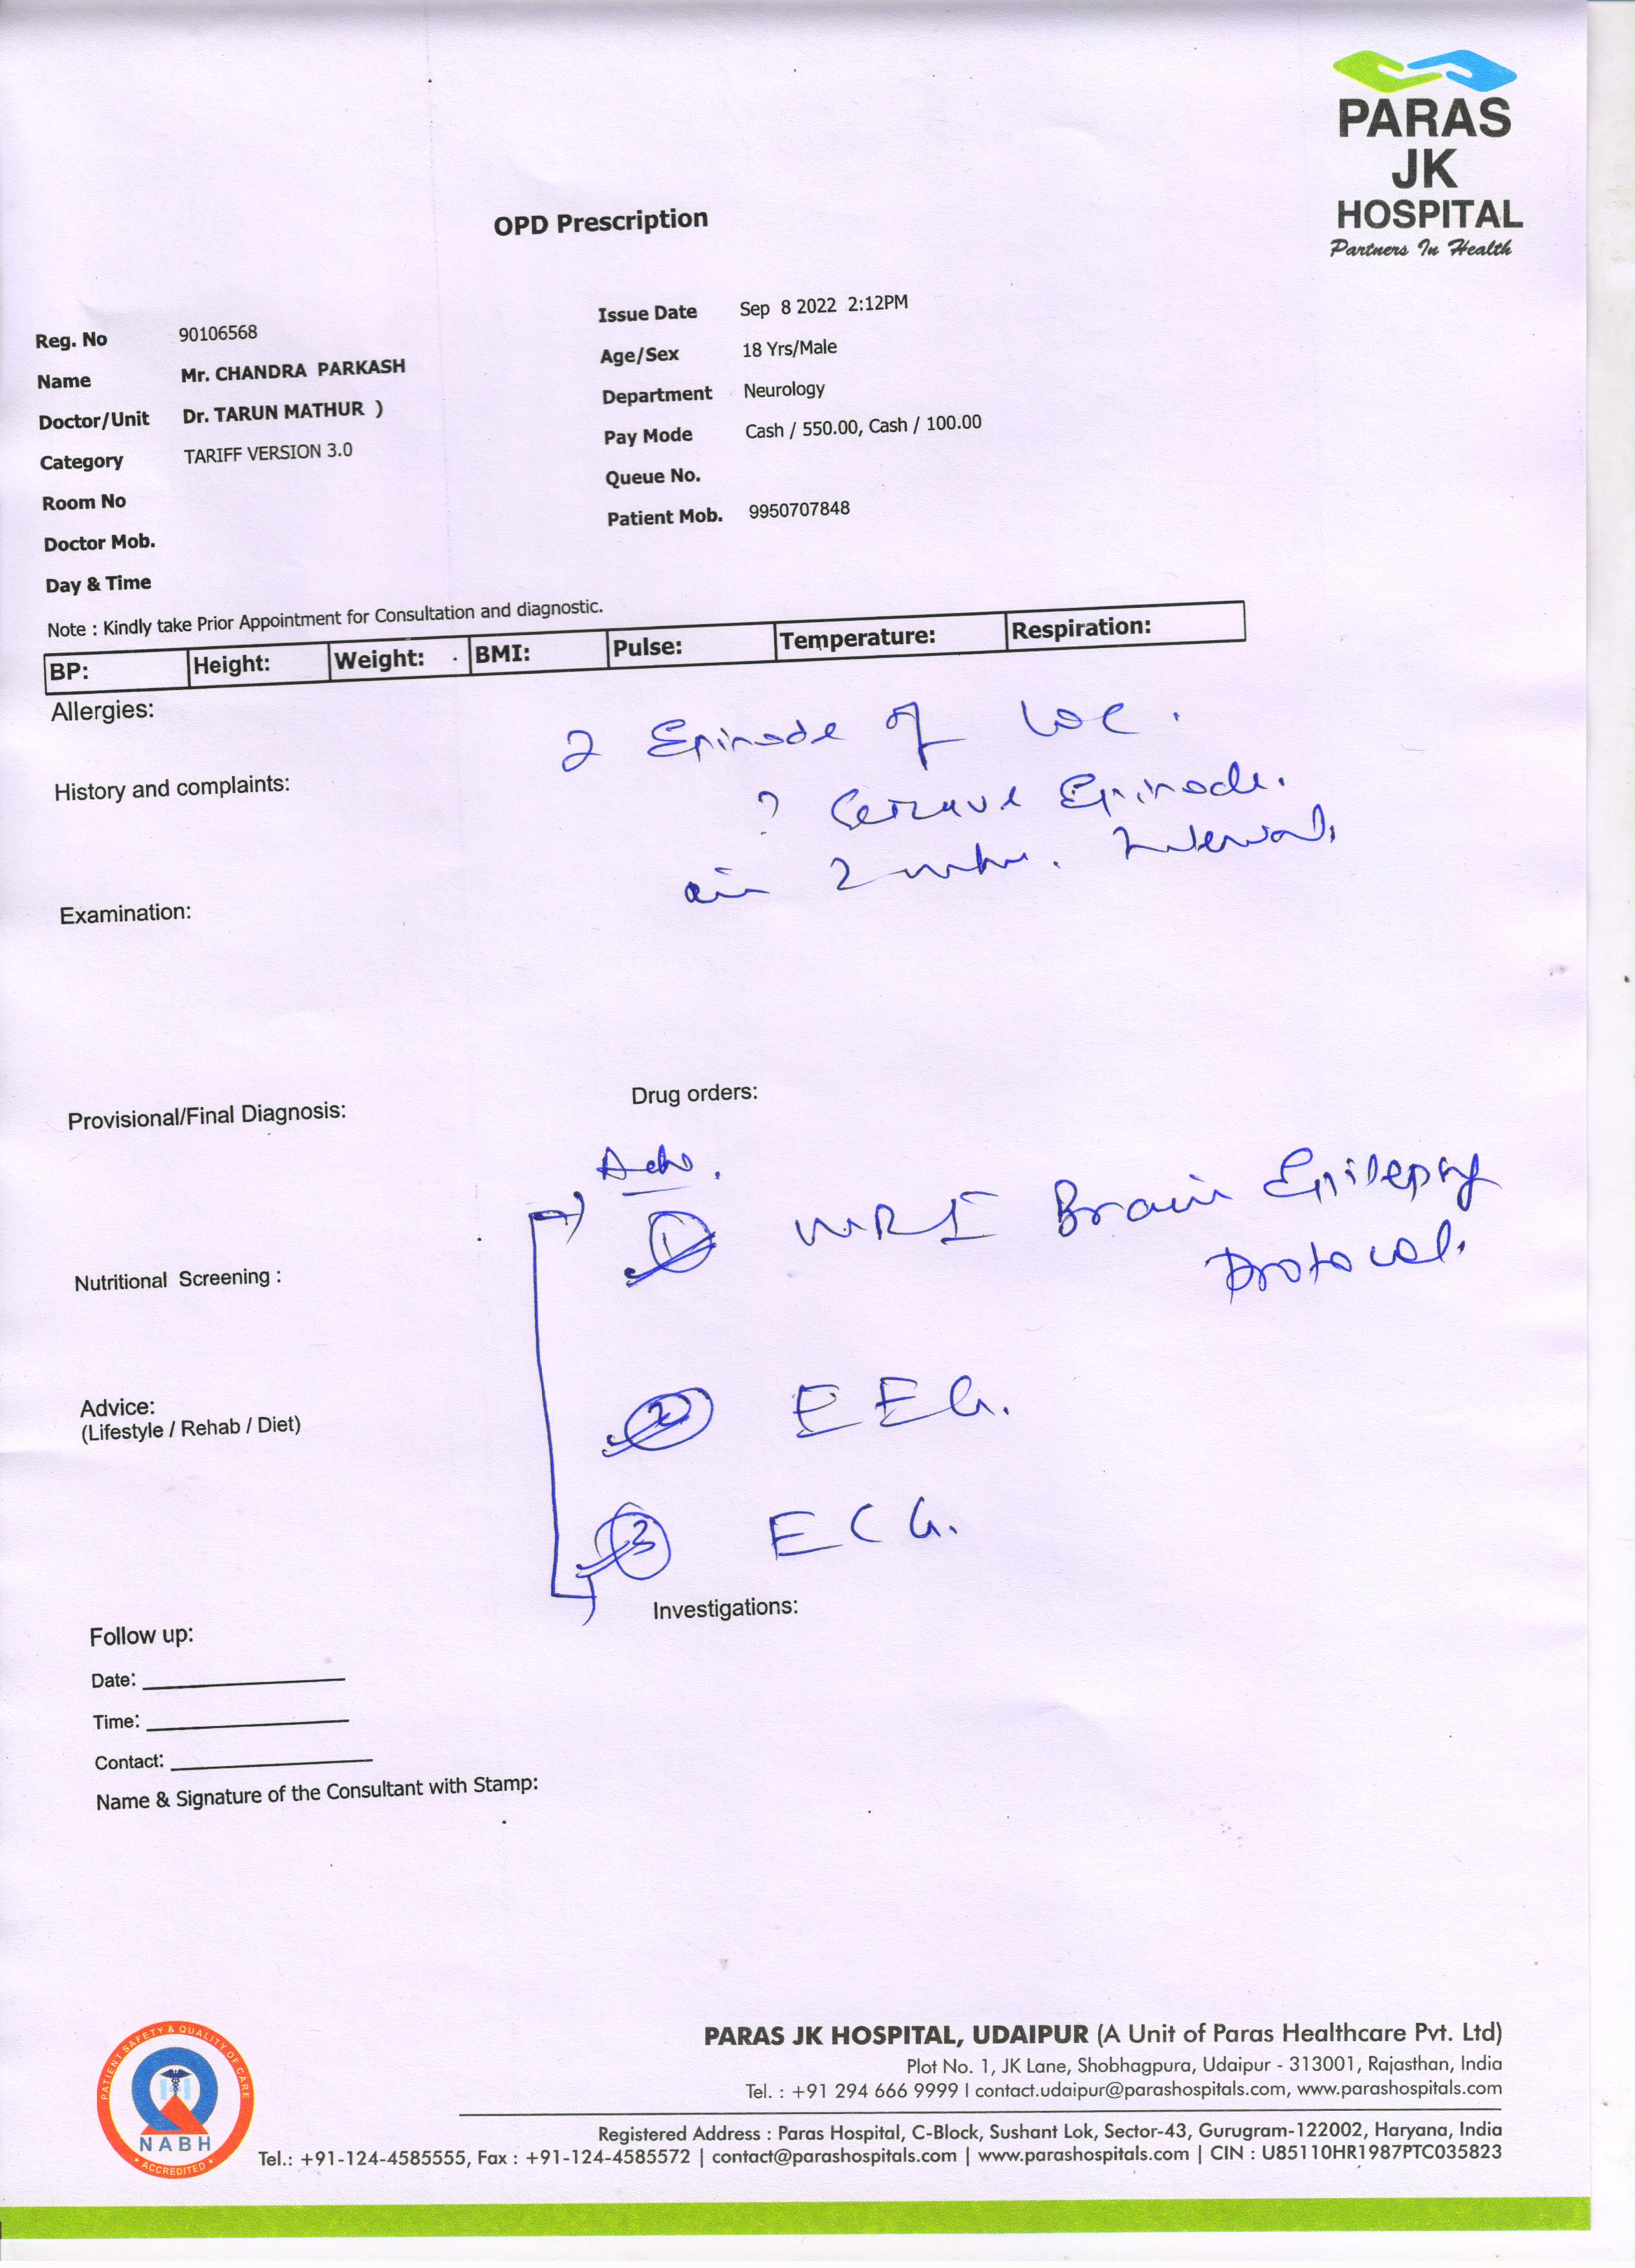 PARAS
JK
HOSPITAL
Partners In Health
OPD Prescription
Reg. No 90106568
Issue Date Sep 8 2022 2:12PM
Name Mr. CHANDRA PARKASH
Age/Sex 18 Yrs/Male
Doctor/Unit Dr. TARUN MATHUR )
Department Neurology
Category TARIFF VERSION 3.0
Pay Mode Cash / 550.00, Cash / 100.00
Room No
Queue No.
Doctor Mob.
Patient Mob. 9950707848
Day & Time
Note : Kindly take Prior Appointment for Consultation and diagnostic.
BP: Height: Weight: BMI: Pulse: Temperature: Respiration:
Allergies:
2 Episode of LOC.
History and complaints:
? Episode.
2 Interval.
Examination:
Provisional/Final Diagnosis:
Drug orders:
Adv.
1 MRI Brain Epilepsy
Protocol.
Nutritional Screening :
Advice:
(Lifestyle / Rehab / Diet)
2 EEG.
3 ECG.
Investigations:
Follow up:
Date:
Time:
Contact:
Name & Signature of the Consultant with Stamp:
PATIENT SAFETY & QUALITY OF CARE
NABH
ACCREDITED
PARAS JK HOSPITAL, UDAIPUR (A Unit of Paras Healthcare Pvt. Ltd)
Plot No. 1, JK Lane, Shobhagpura, Udaipur - 313001, Rajasthan, India
Tel. : +91 294 666 9999 | contact.udaipur@parashospitals.com, www.parashospitals.com
Registered Address : Paras Hospital, C-Block, Sushant Lok, Sector-43, Gurugram-122002, Haryana, India
Tel.: +91-124-4585555, Fax : +91-124-4585572 | contact@parashospitals.com | www.parashospitals.com | CIN : U85110HR1987PTC035823